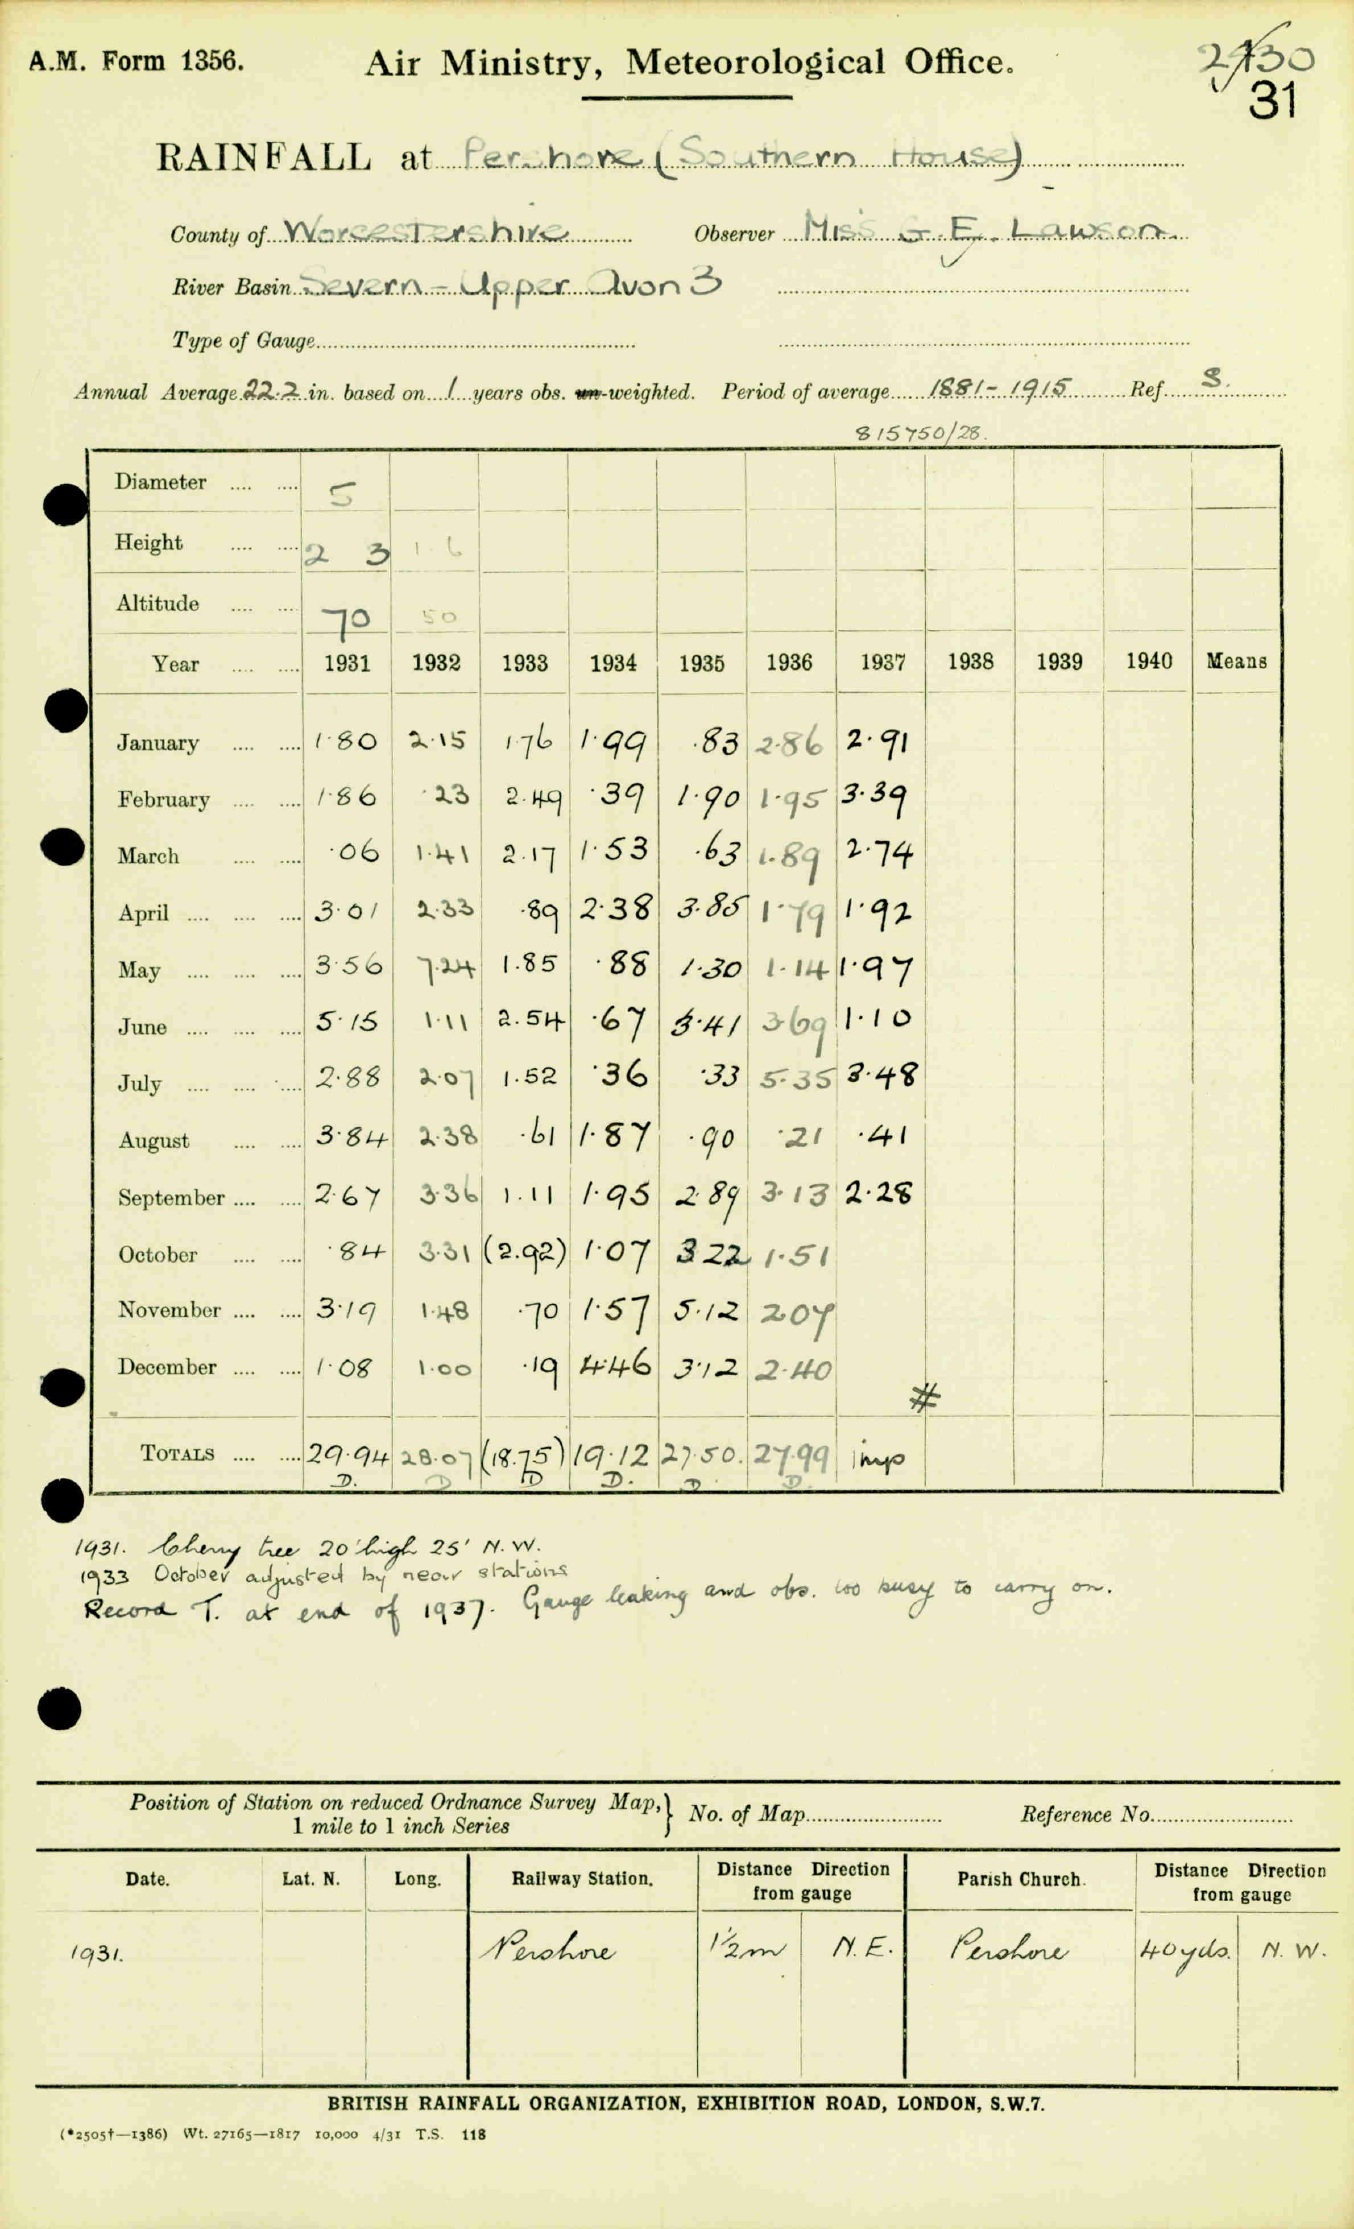 A.M. Form 1356. Air Ministry, Meteorological Office. 2430
31
RAINFALL at Pershore (Southern House)
County of Worcestershire Observer Miss G. E. Lawson.
River Basin Severn - Upper Avon 3
Type of Gauge
Annual Average 22.2 in. based on 1 years obs. un-weighted. Period of average 1881-1915 Ref. S.
815750/28.
Diameter .... .... 5
Height .... .... 2 3 1.6
Altitude .... .... 70 50
Year .... .... 1931 1932 1933 1934 1935 1936 1937 1938 1939 1940 Means
January .... .... 1.80 2.15 1.76 1.99 .83 2.86 2.91
February .... .... 1.86 .23 2.49 .39 1.90 1.95 3.39
March .... .... .06 1.41 2.17 1.53 .63 1.89 2.74
April .... .... .... 3.01 2.33 .89 2.38 3.85 1.79 1.92
May .... .... .... 3.56 7.24 1.85 .88 1.30 1.14 1.97
June .... .... .... 5.15 1.11 2.54 .67 3.41 3.69 1.10
July .... .... .... 2.88 2.07 1.52 .36 .33 5.35 3.48
August .... .... 3.84 2.38 .61 1.87 .90 .21 .41
September .... .... 2.67 3.36 1.11 1.95 2.89 3.13 2.28
October .... .... .84 3.31 (2.92) 1.07 3.22 1.51
November .... .... 3.19 1.48 .70 1.57 5.12 2.07
December .... .... 1.08 1.00 .19 4.46 3.12 2.40
#
TOTALS .... .... 29.94 28.07 (18.75) 19.12 27.50. 27.99 imp
D. D D D. D D.
1931. Cherry tree 20' high 25' N.W.
1933 October adjusted by near stations
Record T. at end of 1937. Gauge leaking and obs. too busy to carry on.
Position of Station on reduced Ordnance Survey Map, } No. of Map Reference No.
1 mile to 1 inch Series
Date. Lat. N. Long. Railway Station. Distance Direction from gauge Parish Church. Distance Direction from gauge
1931. Pershore 1½m N.E. Pershore 40yds. N.W.
BRITISH RAINFALL ORGANIZATION, EXHIBITION ROAD, LONDON, S.W.7.
(*2505†—1386) Wt. 27165—1817 10,000 4/31 T.S. 118